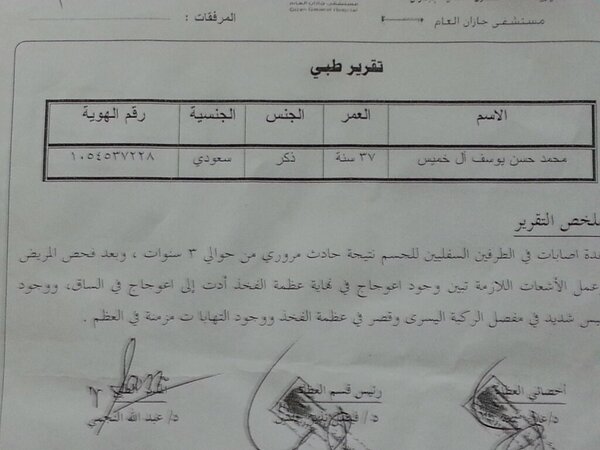 مستشفى جازان العام
المرفقات :
تقرير طبي
الاسم العمر الجنس الجنسية رقم الهوية
محمد حسن يوسف آل خميس ٣٧ سنة ذكر سعودي ١٠٥٤٥٣٧٢٢٨
لخص التقرير
دة اصابات في الطرفين السفليين للجسم نتيجة حادث مروري من حوالي ٣ سنوات ، وبعد فحص المريض
عمل الأشعات اللازمة تبين وجود اعوجاج في نهاية عظمة الفخذ أدت إلى اعوجاج في الساق، ووجود
يس شديد في مفصل الركبة اليسرى وقصر في عظمة الفخذ ووجود التهابات مزمنة في العظم .
أخصائي العظام رئيس قسم العظام
د/ د/ د/ عبد الله النجمي